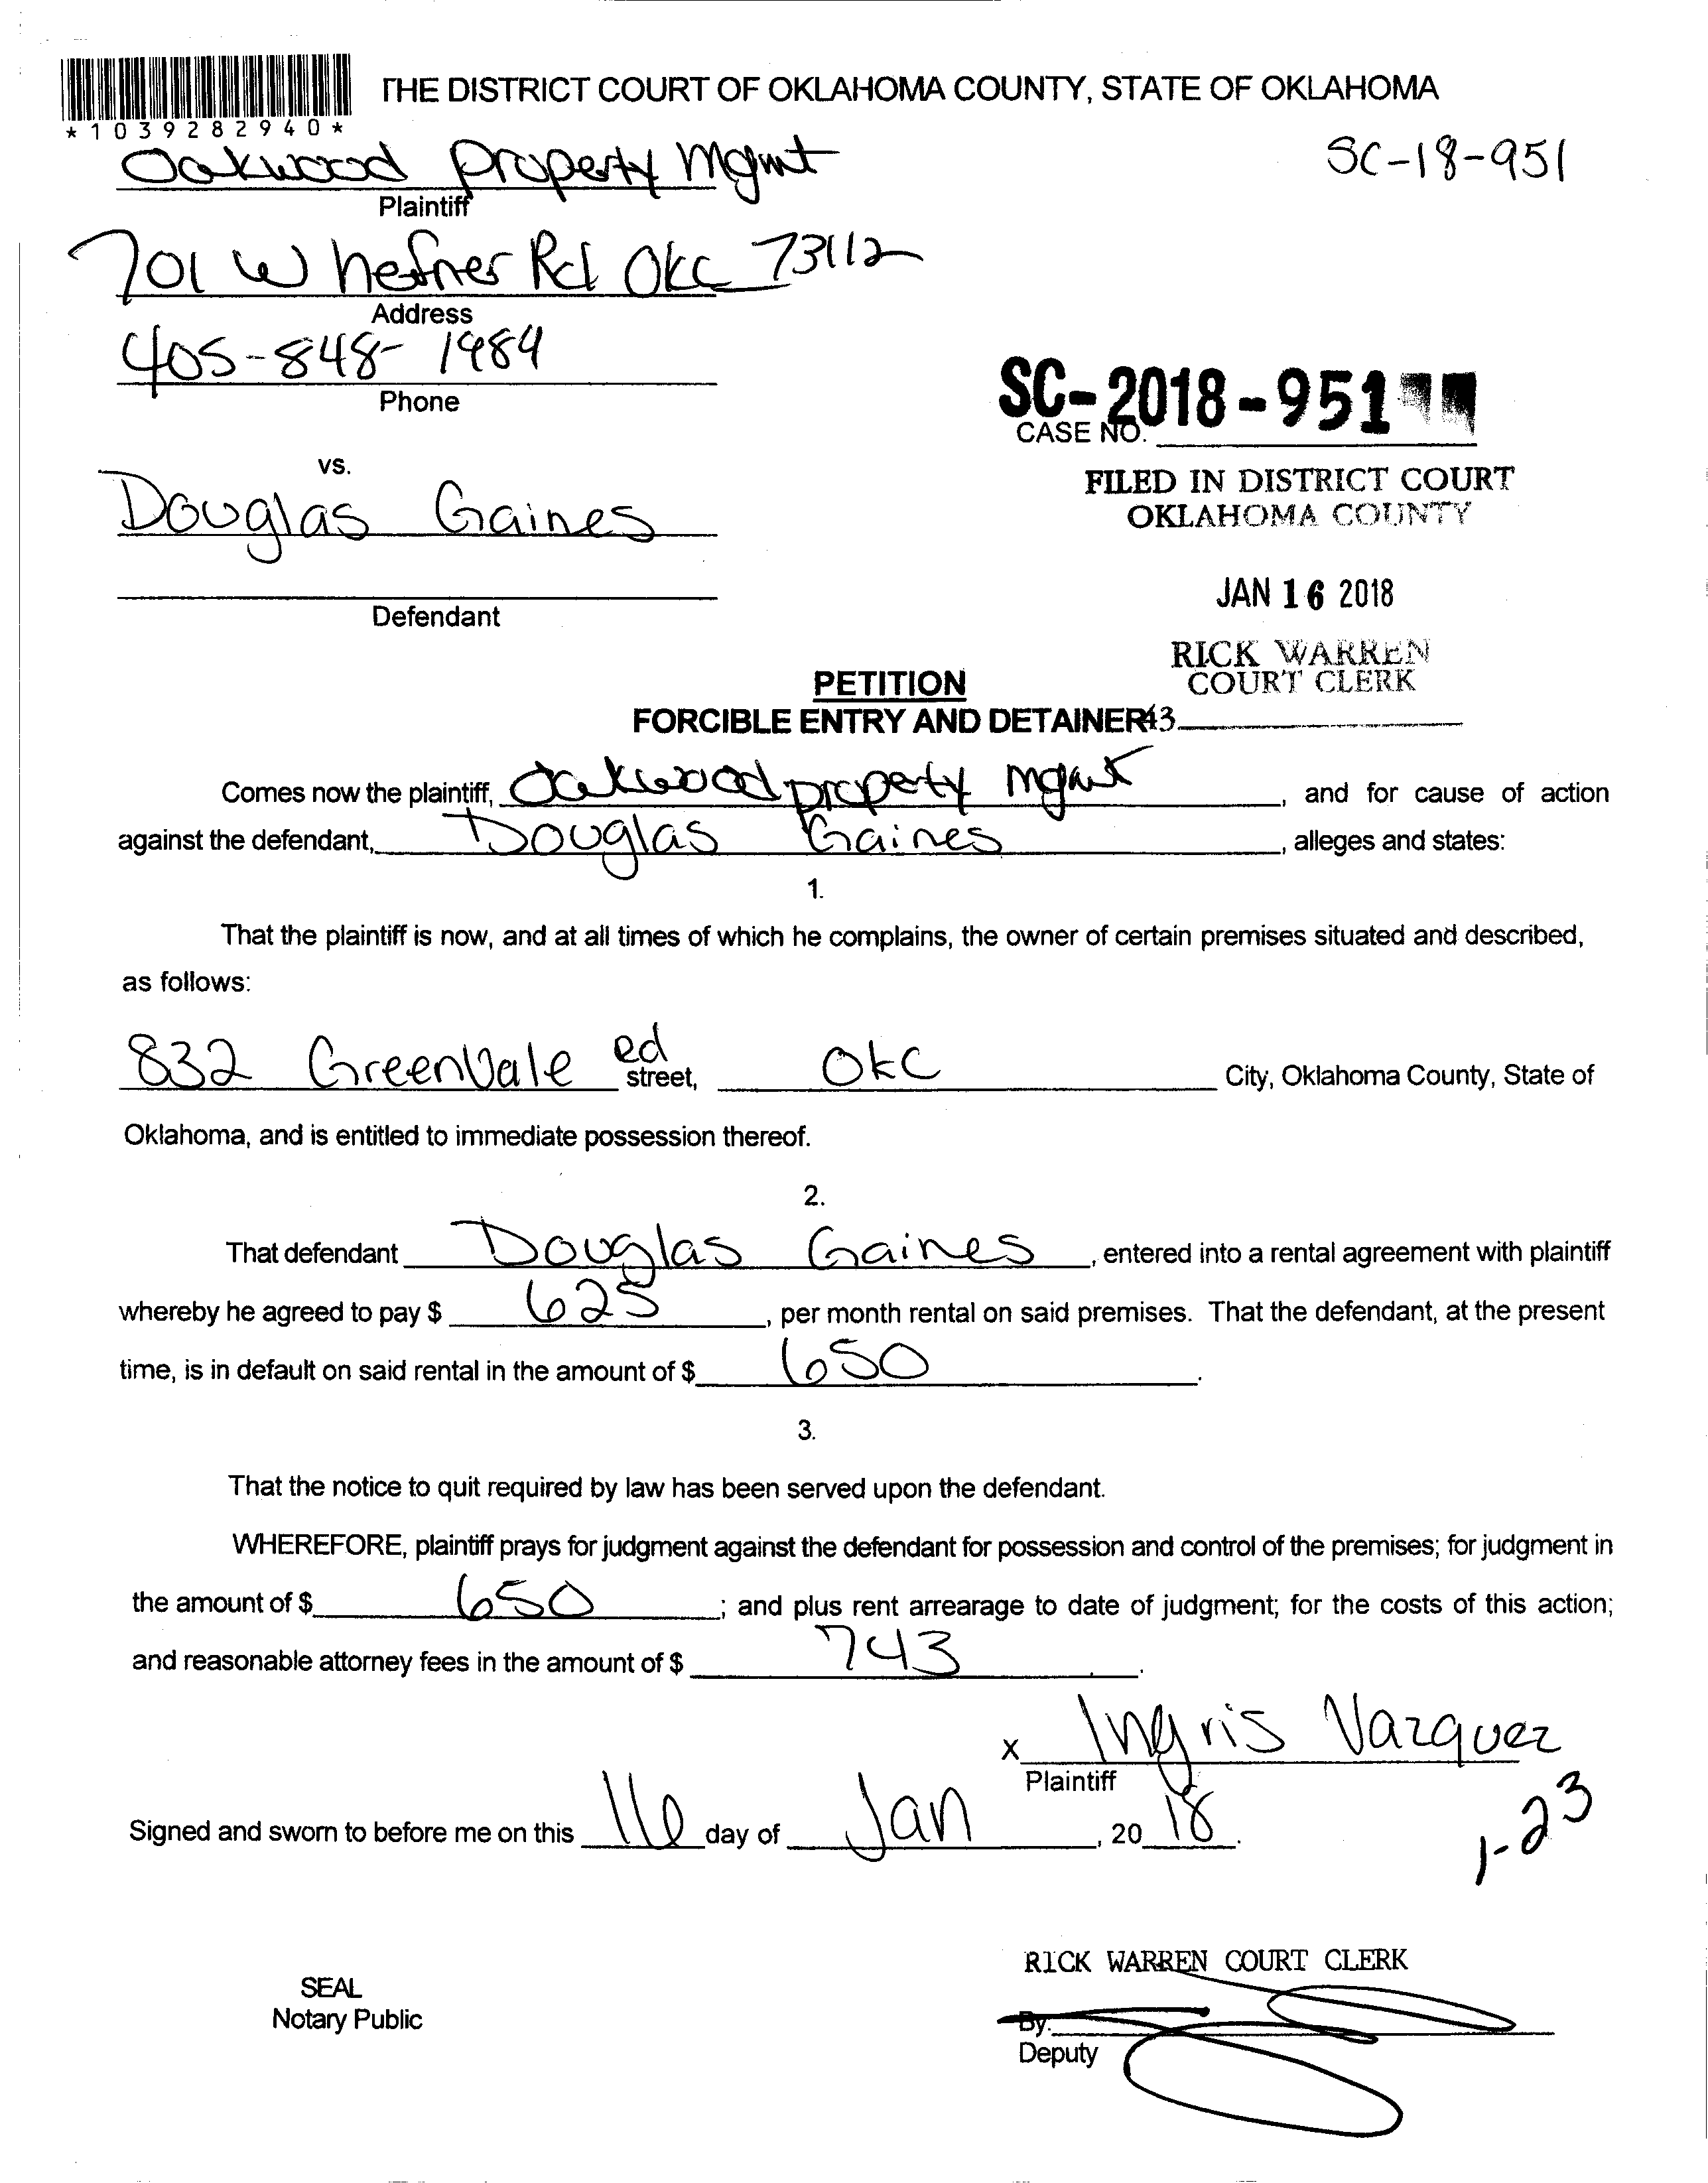 THE DISTRICT COURT OF OKLAHOMA COUNTY, STATE OF OKLAHOMA
*1039282940*
Oakwood property Mgmt
SC-18-951
Plaintiff
701 W hefner Rd OKC 73112
Address
405-848-1984
Phone
SC-2018-951
CASE NO.
vs.
FILED IN DISTRICT COURT
OKLAHOMA COUNTY
Douglas Gaines
Defendant
JAN 16 2018
RICK WARREN
COURT CLERK
PETITION
FORCIBLE ENTRY AND DETAINER 43
Comes now the plaintiff, Oakwood property mgmt, and for cause of action
against the defendant, Douglas Gaines, alleges and states:
1.
That the plaintiff is now, and at all times of which he complains, the owner of certain premises situated and described,
as follows:
832 GreenVale ed street, OKC City, Oklahoma County, State of
Oklahoma, and is entitled to immediate possession thereof.
2.
That defendant Douglas Gaines, entered into a rental agreement with plaintiff
whereby he agreed to pay $ 625, per month rental on said premises. That the defendant, at the present
time, is in default on said rental in the amount of $ 650.
3.
That the notice to quit required by law has been served upon the defendant.
WHEREFORE, plaintiff prays for judgment against the defendant for possession and control of the premises; for judgment in
the amount of $ 650; and plus rent arrearage to date of judgment; for the costs of this action;
and reasonable attorney fees in the amount of $ 743.
x Ingris Vazquez
Plaintiff
Signed and sworn to before me on this 16 day of Jan, 2018.
1-23
RICK WARREN COURT CLERK
SEAL
Notary Public
By:
Deputy